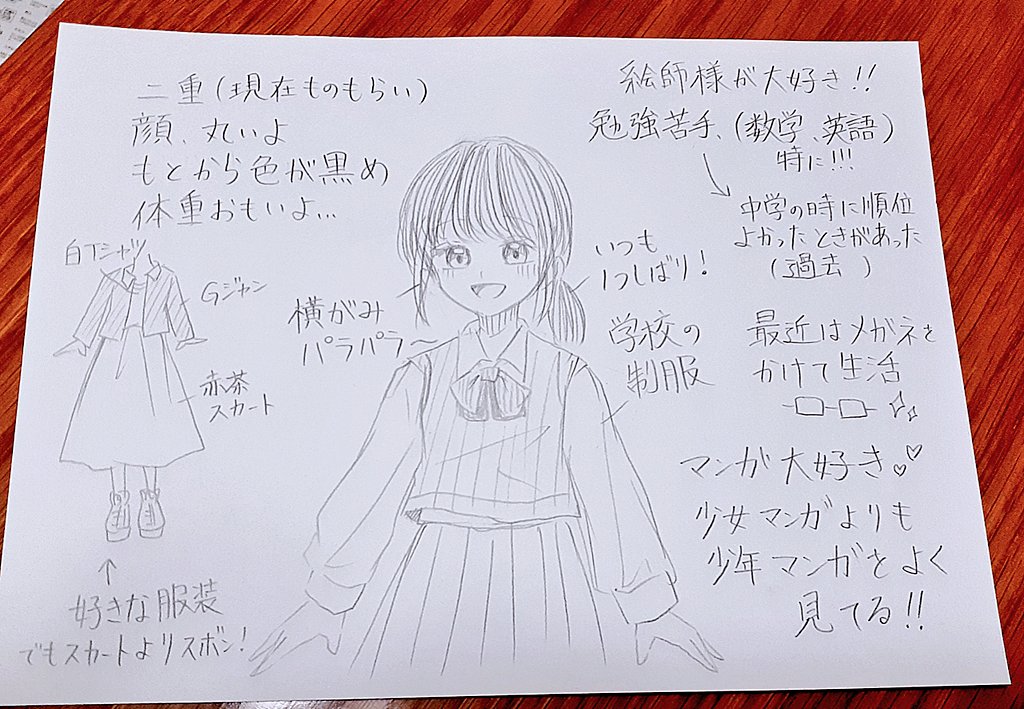 二重(現在ものもらい)
顔、丸いよ
もとから色が黒め
体重おもいよ…
白Tシャツ
Gジャン
赤茶
スカート
↑
好きな服装
でもスカートよりズボン!
横がみ
パラパラ〜
いつも
1つしばり!
学校の
制服
絵師様が大好き!!
勉強苦手、(数学、英語)
特に!!!
中学の時に順位
よかったときがあった
(過去 )
最近はメガネを
かけて生活
マンガ大好き♡♡
少女マンガよりも
少年マンガをよく
見てる!!